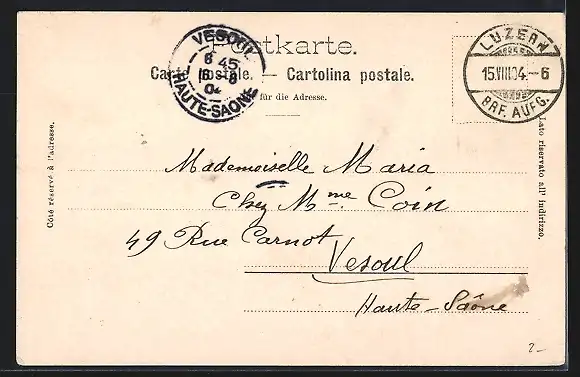 Postkarte.
Carte postale. — Cartolina postale.
für die Adresse.
VESOUL
6 45
16 -8
04
HAUTE-SAONE
LUZERN
15.VIII.04.-6
BRF. AUFG.
Côté réservé à l'adresse.
Lato riservato all' indirizzo.
Mademoiselle Maria
Chez Mme. Coin
49 Rue Carnot
Vesoul
Haute-Saône
2-